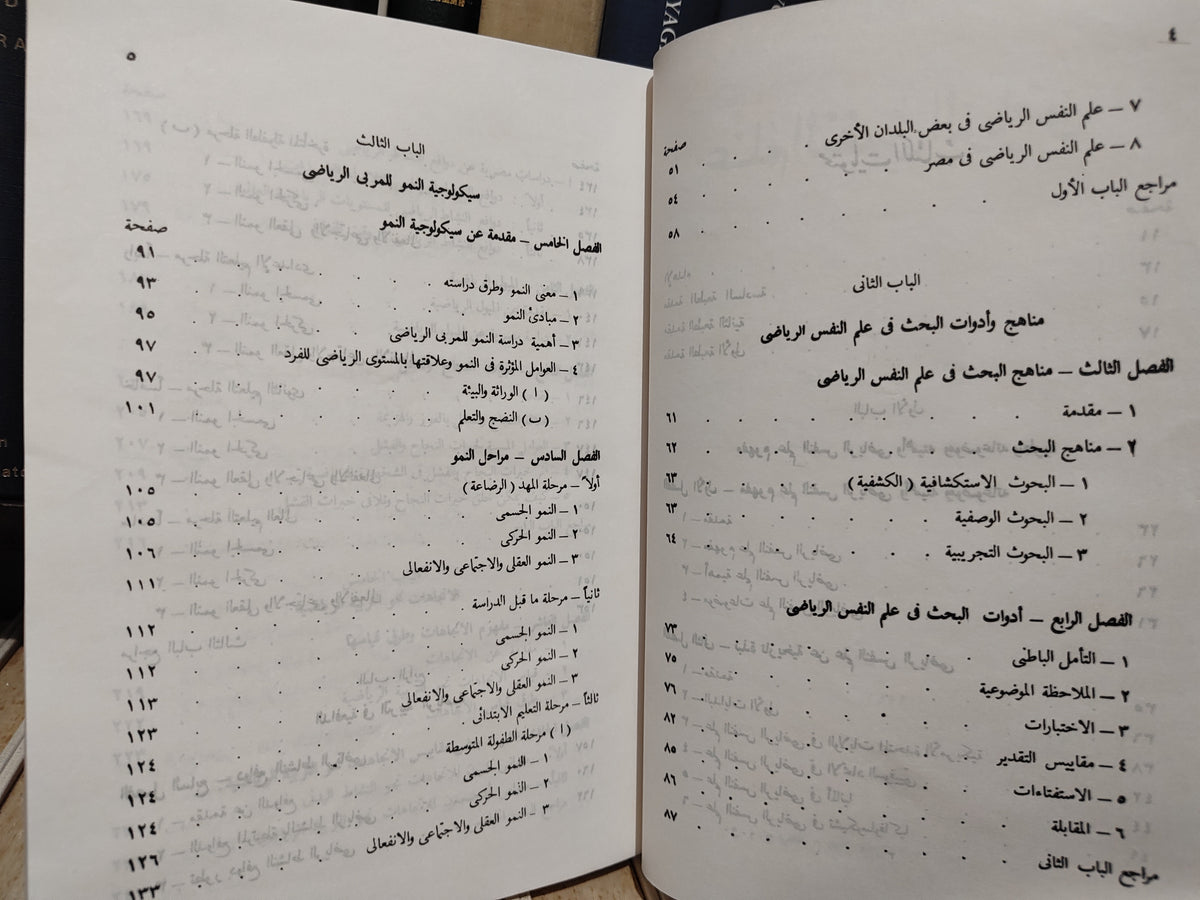 ٤
صفحة
٧ – علم النفس الرياضى فى بعض البلدان الأخرى . ٥١
٨ – علم النفس الرياضى فى مصر . . . . ٥٤
مراجع الباب الأول . . . . . . ٥٨
الباب الثانى
مناهج وأدوات البحث فى علم النفس الرياضى
الفصل الثالث – مناهج البحث فى علم النفس الرياضى
١ – مقدمة . . . . . . ٦١
٢ – مناهج البحث . . . . . . ٦٢
١ – البحوث الاستكشافية ( الكشفية ) . . . . ٦٣
٢ – البحوث الوصفية . . . . . ٦٣
٣ – البحوث التجريبية . . . . . ٦٤
الفصل الرابع – أدوات البحث فى علم النفس الرياضى
١ – التأمل الباطنى . . . . . . ٧٣
٢ – الملاحظة الموضوعية . . . . . ٧٥
٣ – الاختبارات . . . . . . ٧٦
٤ – مقاييس التقدير . . . . . . ٨٢
٥ – الاستفتاءات . . . . . . ٨٥
٦ – المقابلة . . . . . . ٨٦
مراجع الباب الثانى . . . . . . ٨٧
٥
الباب الثالث
سيكولوجية النمو للمربى الرياضى
الفصل الخامس – مقدمة عن سيكولوجية النمو
صفحة
١ – معنى النمو وطرق دراسته . . . . . ٩١
٢ – مبادئ النمو . . . . . . ٩٣
٣ – أهمية دراسة النمو للمربى الرياضى . . . . ٩٥
٤ – العوامل المؤثرة فى النمو وعلاقتها بالمستوى الرياضى للفرد . ٩٧
( ا ) الوراثة والبيئة . . . . . ٩٧
( ب ) النضج والتعلم . . . . . ١٠١
الفصل السادس – مراحل النمو
أولاً – مرحلة المهد ( الرضاعة ) . . . . ١٠٥
١ – النمو الجسمى . . . . . ١٠٥
٢ – النمو الحركى . . . . . ١٠٦
٣ – النمو العقلى والاجتماعى والانفعالى . . . ١١١
ثانياً – مرحلة ما قبل الدراسة . . . . ١١٢
١ – النمو الجسمى . . . . . ١١٢
٢ – النمو الحركى . . . . . ١١٣
٣ – النمو العقلى والاجتماعى والانفعالى . . . ١٢٣
ثالثاً – مرحلة التعليم الابتدائى . . . . ١٢٤
( ا ) مرحلة الطفولة المتوسطة . . . . ١٢٤
١ – النمو الجسمى . . . . . ١٢٤
٢ – النمو الحركى . . . . . ١٢٦
٣ – النمو العقلى والاجتماعى والانفعالى . . . ١٣٣